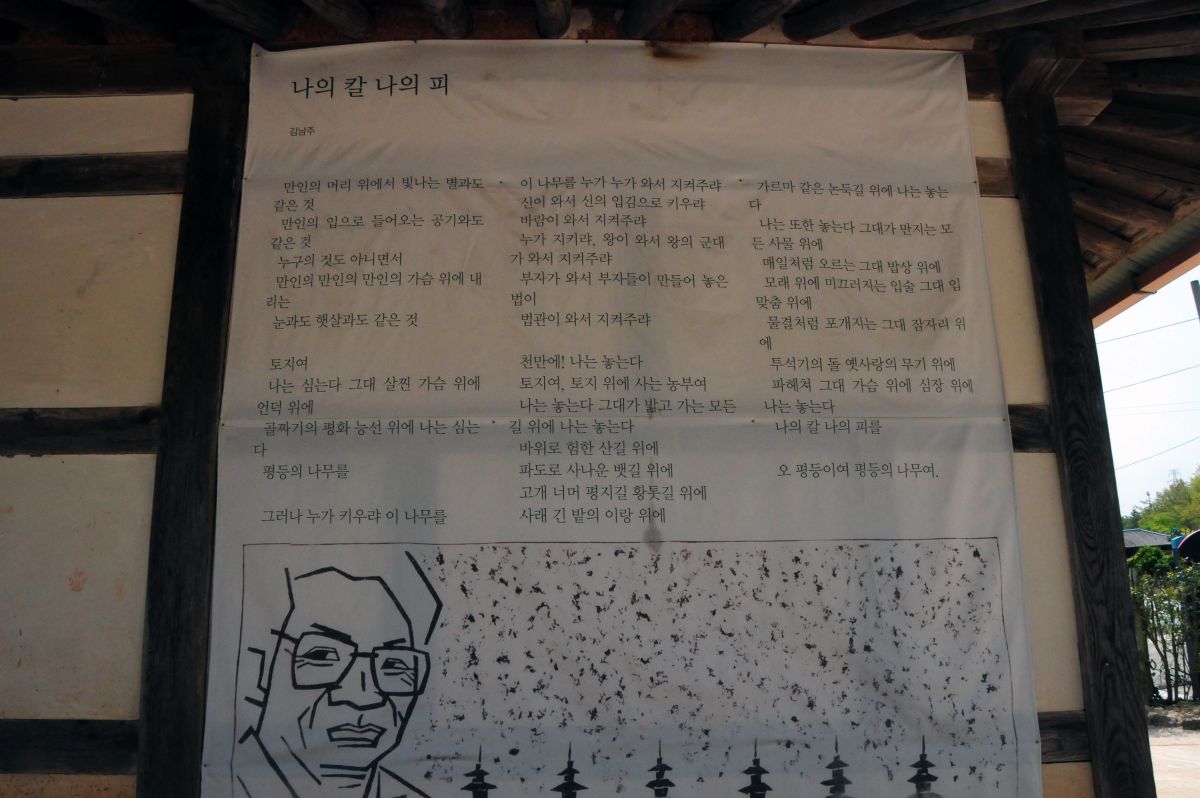 나의 칼 나의 피
김남주
만인의 머리 위에서 빛나는 별과도
같은 것
만인의 입으로 들어오는 공기와도
같은 것
누구의 것도 아니면서
만인의 만인의 만인의 가슴 위에 내
리는
눈과도 햇살과도 같은 것
토지여
나는 심는다 그대 살찐 가슴 위에
언덕 위에
골짜기의 평화 능선 위에 나는 심는
다
평등의 나무를
그러나 누가 키우랴 이 나무를
이 나무를 누가 누가 와서 지켜주랴
신이 와서 신의 입김으로 키우랴
바람이 와서 지켜주랴
누가 지키랴, 왕이 와서 왕의 군대
가 와서 지켜주랴
부자가 와서 부자들이 만들어 놓은
법이
법관이 와서 지켜주랴
천만에! 나는 놓는다
토지여, 토지 위에 사는 농부여
나는 놓는다 그대가 밟고 가는 모든
길 위에 나는 놓는다
바위로 험한 산길 위에
파도로 사나운 뱃길 위에
고개 너머 평지길 황톳길 위에
사래 긴 밭의 이랑 위에
가르마 같은 논둑길 위에 나는 놓는
다
나는 또한 놓는다 그대가 만지는 모
든 사물 위에
매일처럼 오르는 그대 밥상 위에
모래 위에 미끄러지는 입술 그대 입
맞춤 위에
물결처럼 포개지는 그대 잠자리 위
에
투석기의 돌 옛사랑의 무기 위에
파헤쳐 그대 가슴 위에 심장 위에
나는 놓는다
나의 칼 나의 피를
오 평등이여 평등의 나무여,